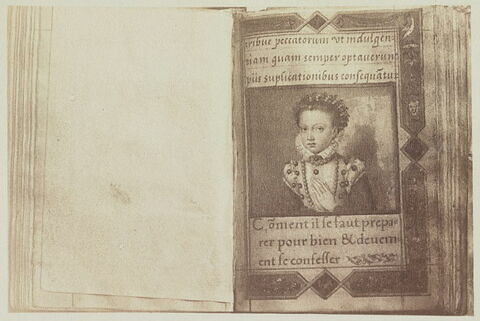 tribue peccatorum vt indulgen
tiam quam semper optauerunt
piis suplicationibus consequãtur
Cõment il se faut prepa-
rer pour bien & deuem
ent se confesser